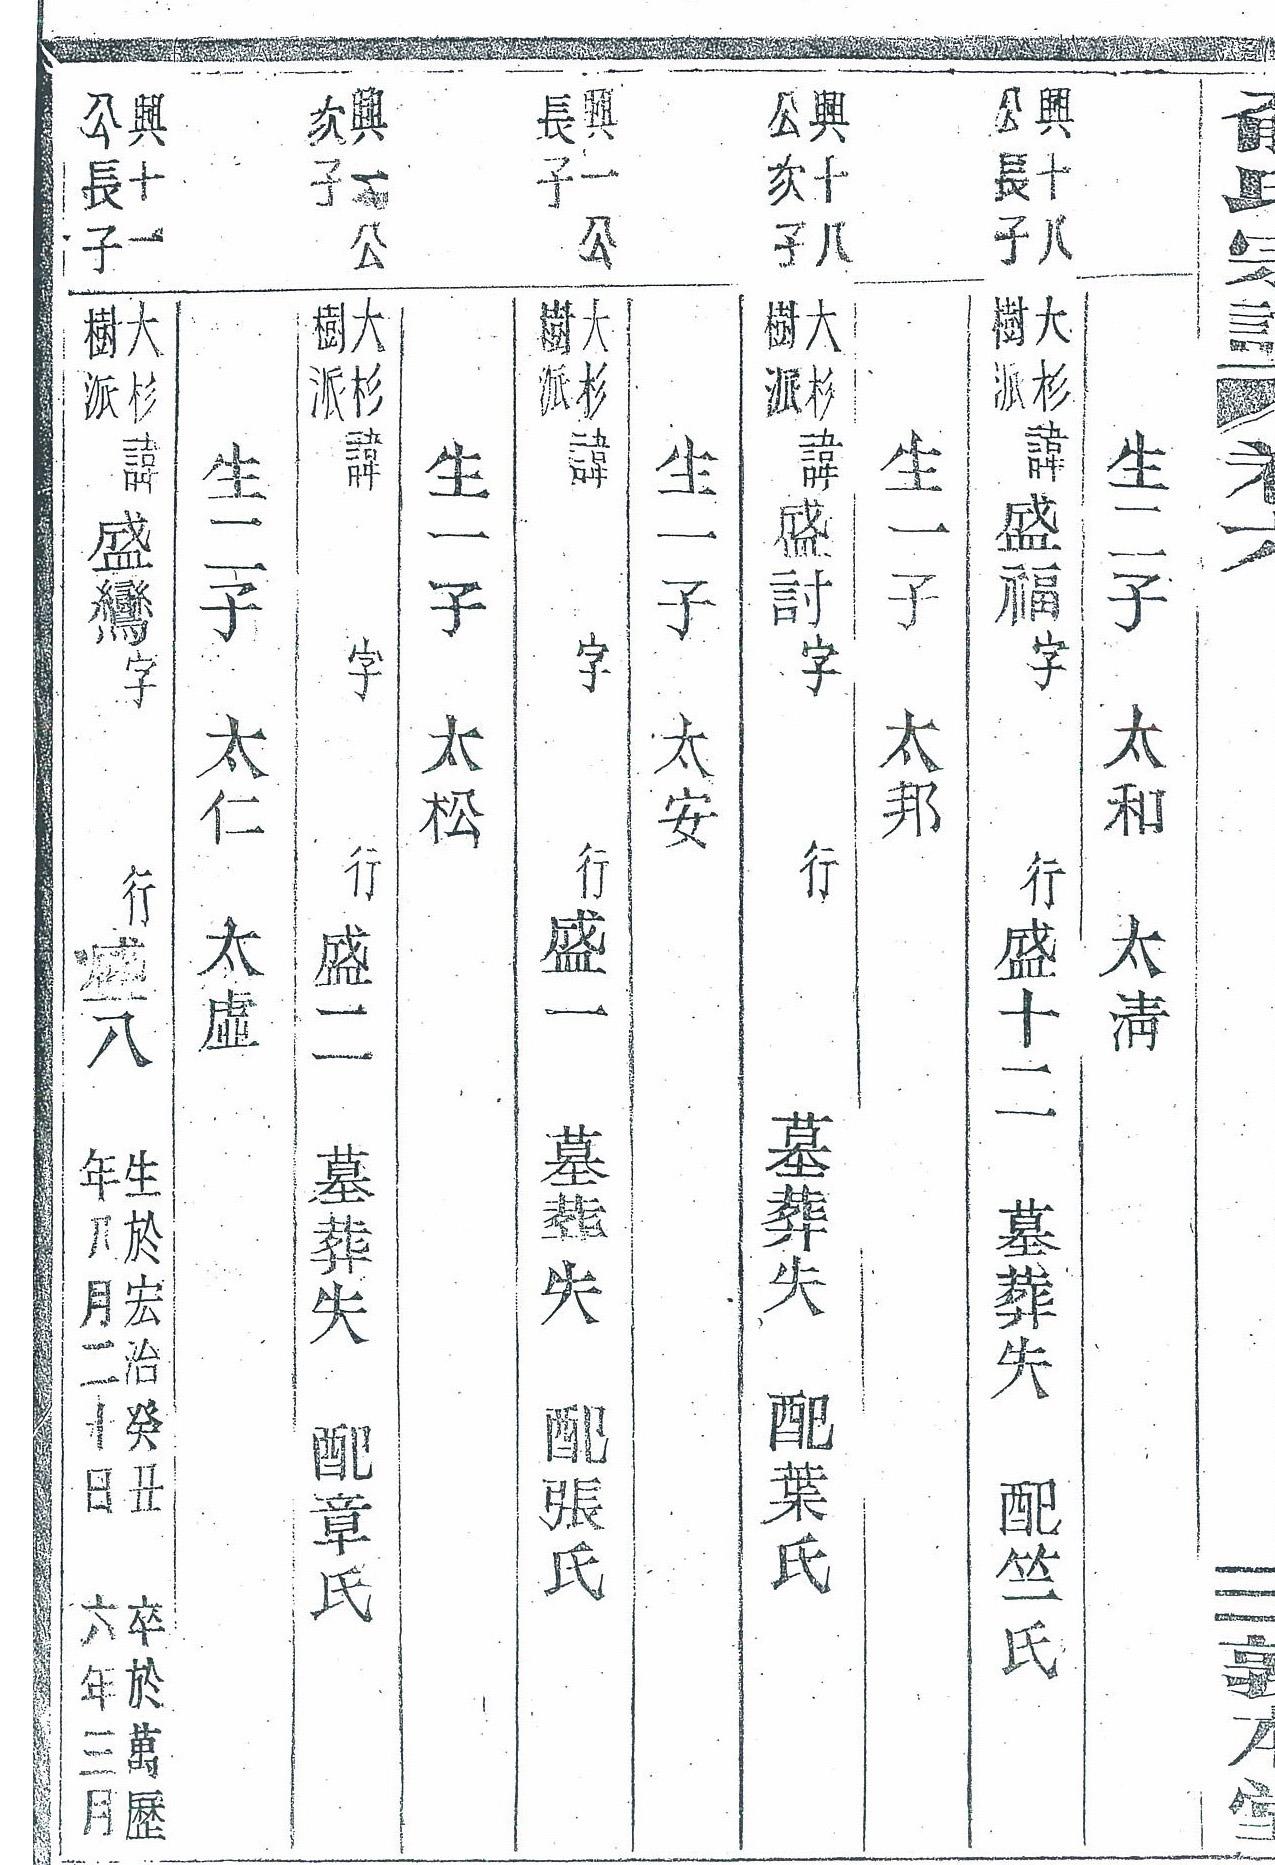 氏宗譜 卷六 敦本堂
生二子 太和 太清
興十八
公長子
大杉
樹派
諱盛福字 行盛十二 墓葬失 配竺氏
生一子 太邦
興十八
公次子
大杉
樹派
諱盛討字 行 墓葬失 配葉氏
生一子 太安
興一公
長子
大杉
樹派
諱 字 行盛一 墓葬失 配張氏
生一子 太松
興一公
次子
大杉
樹派
諱 字 行盛二 墓葬失 配章氏
生二子 太仁 太虛
興十一
公長子
大杉
樹派
諱盛鸞字 行盛八
生於宏治癸丑
年八月二十日
卒於萬歷
六年三月